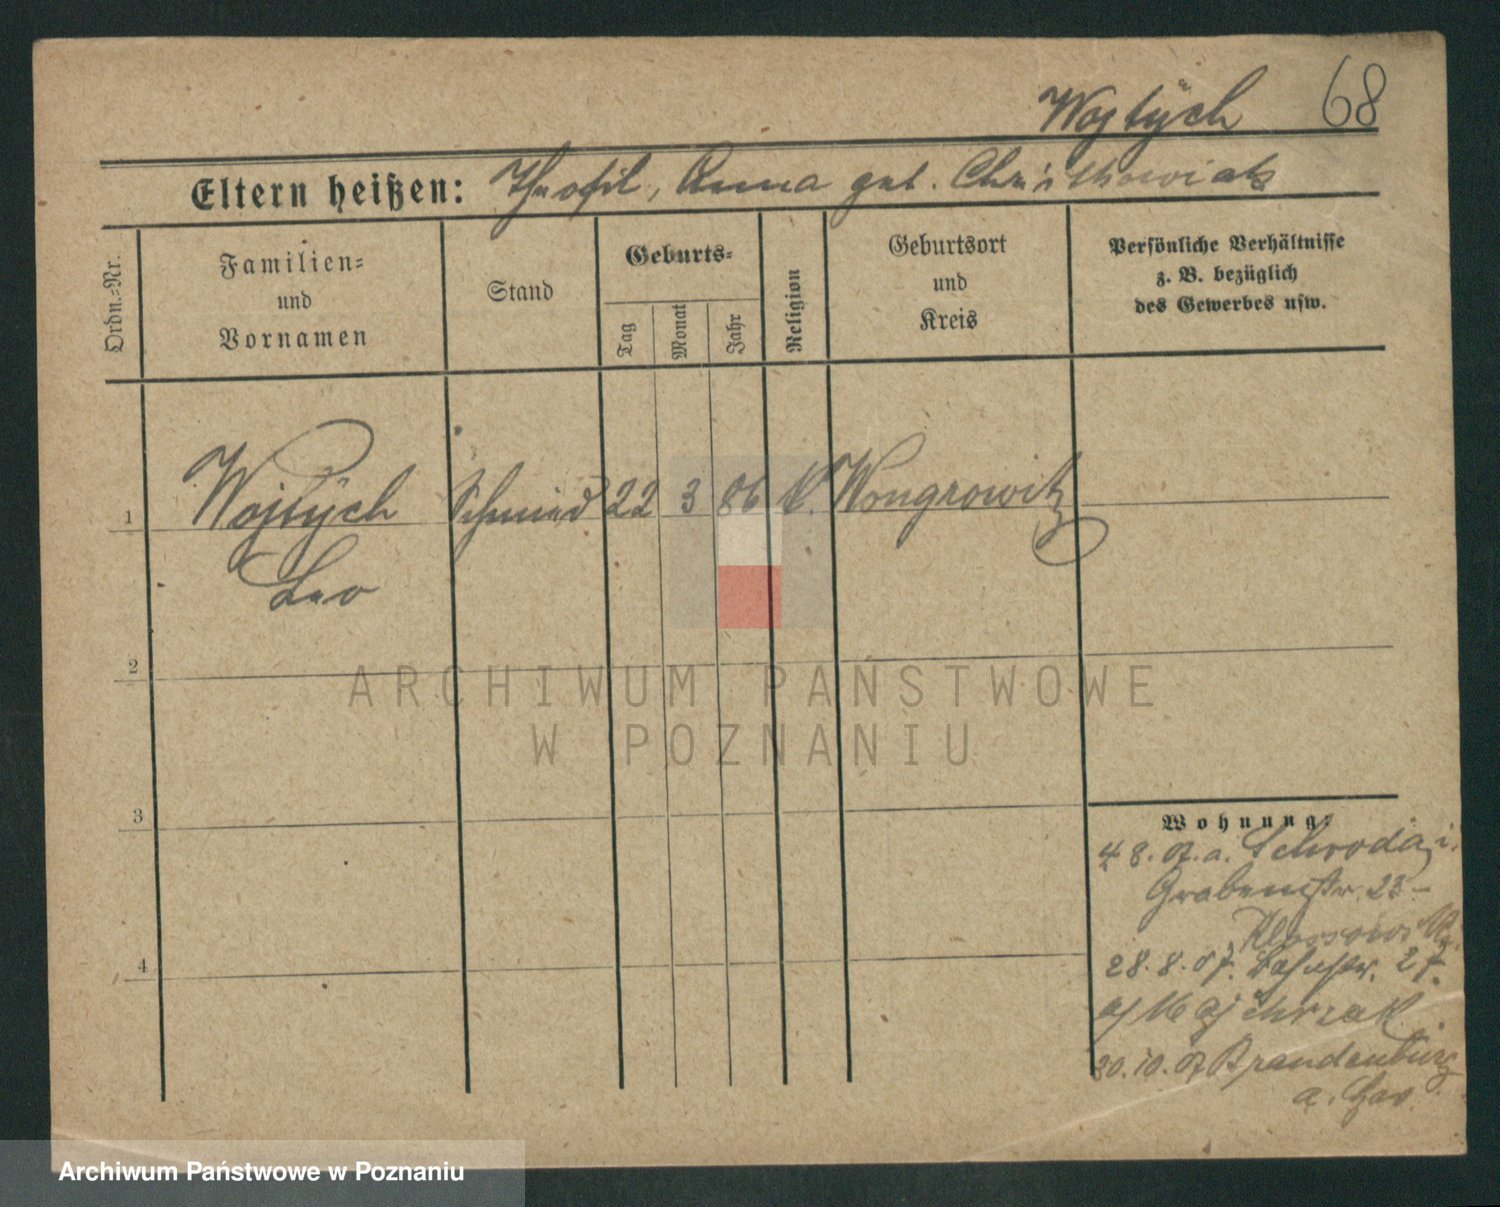 Wojtÿch 68
Eltern heißen: Theofil, Anna geb.
Ordn.=Nr.
Familien=
und
Vornamen
Stand
Geburts=
Tag
Monat
Jahr
Religion
Geburtsort
und
Kreis
Persönliche Verhältnisse
z. B. bezüglich
des Gewerbes usw.
1 Wojtÿch Schmied 22 3 86 k. Wongrowitz
Leo
2
3
4
Wohnung:
4 8. 07. a. Schroda
Grabenstr. 23
28. 8. 07. Bahnstr. 27.
20. 10. 07 Brandenburg
a. Hav.
ARCHIWUM PAŃSTWOWE
W POZNANIU
Archiwum Państwowe w Poznaniu